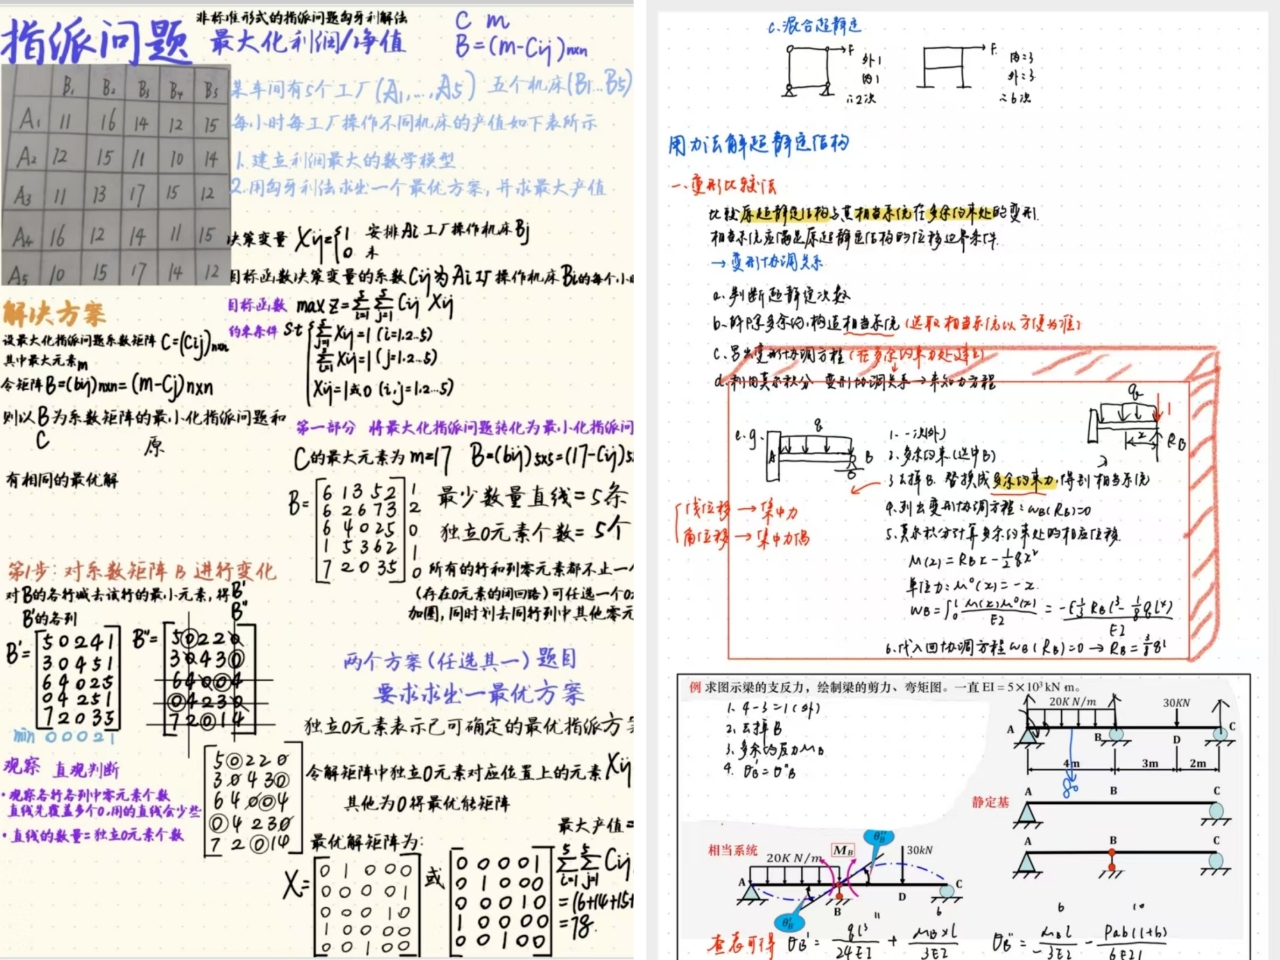 非标准形式的指派问题匈牙利解法
指派问题 最大化利润/净值
C m
B=(m-Cij)nxn
B1 B2 B3 B4 B5
A1 11 16 14 12 15
A2 12 15 11 10 14
A3 11 13 17 15 12
A4 16 12 14 11 15
A5 10 15 17 14 12
某车间有5个工厂(A1,...,A5) 五个机床(B1...B5)
每小时每工厂操作不同机床的产值如下表所示
1.建立利润最大的数学模型
2.用匈牙利法求出一个最优方案,并求最大产值
决策变量 Xij={1 安排Ai工厂操作机床Bj
0 未
目标函数决策变量的系数Cij为Ai工厂操作机床Bi的每个小
目标函数 max z=5∑i=1 5∑j=1 Cij Xij
约束条件 st {5∑j=1 Xij=1 (i=1.2..5)
5∑i=1 Xij=1 (j=1.2..5)
Xij=1或0 (i,j=1.2...5)
解决方案
设最大化指派问题系数矩阵 C=(Cij)nxn
其中最大元素m
令矩阵B=(bij)nxn=(m-Cj)nxn
则以B为系数矩阵的最小化指派问题和
C 原
有相同的最优解
第一部分 将最大化指派问题转化为最小化指派问
C的最大元素为 m=17 B=(bij)5x5=(17-Cij)5
B=
6 1 3 5 2 1
6 2 6 7 3 2
6 4 0 2 5 0
1 5 3 6 2 1
7 2 0 3 5 0
最少数量直线=5条
独立0元素个数=5个
所有的行和列零元素都不止一
(存在0元素的闭回路)可任选一个0
加圈,同时划去同行列中其他零元
第1步:对系数矩阵 B 进行变化
对B的各行减去该行的最小元素,得B'
B'的各列 B"
B'=
5 0 2 4 1
3 0 4 5 1
6 4 0 2 5
0 4 2 5 1
7 2 0 3 5
min 0 0 0 2 1
B"=
5 0 2 2 0
3 0 4 3 0
6 4 0 0 4
0 4 2 3 0
7 2 0 1 4
观察 直观判断
·观察各行各列中零元素个数
直线先覆盖多个0,用的直线会少些
·直线的数量=独立0元素个数
5 0 2 2 0
3 0 4 3 0
6 4 0 0 4
0 4 2 3 0
7 2 0 1 4
两个方案(任选其一)题目
要求求出一最优方案
独立0元素表示已可确定的最优指派方
令解矩阵中独立0元素对应位置上的元素Xij
其他为0将最优解矩阵
最优解矩阵为:
X=
0 1 0 0 0
0 0 0 0 1
0 0 0 1 0
1 0 0 0 0
0 0 1 0 0
或
0 0 0 0 1
0 1 0 0 0
0 0 0 1 0
1 0 0 0 0
0 0 1 0 0
最大产值=
5∑i=1 5∑j=1 Cij
=(16+14+15+
=78.
c.混合超静定
F 外1
内1
∴2次
F. 内=3
外=3
∴6次
用力法解超静定结构
一.变形比较法
比较原超静定结构与其相当系统在多余约束处的变形.
相当系统应满足原超静定结构的位移边界条件
→变形协调关系
a.判断超静定次数
b.解除多余约,构造相当系统(选取相当系统以方便为准)
c.写出变形协调方程(在多余约束力处建立)
d.利用莫尔积分 变形协调关系→求知力方程
e.g. q A B
q 1 x RB
1.一次(外)
2.多余约束(选中B)
3.去掉B.替换成多余约束力,得到相当系统
4.列出变形协调方程:wB(RB)=0
5.莫尔积分计算多余约束处的相应位移.
M(x)=RBx-½qx²
单位力:M⁰(x)=-x.
线位移→集中力
角位移→集中力偶
6.代入回协调方程wB(RB)=0→RB=3/8ql
例 求图示梁的支反力,绘制梁的剪力、弯矩图。一直 EI = 5×10³kN·m。
1. 4-3=1(外)
2.去掉B
3.多余约反力MB
4. θB'=θ"B
20K N/m 30KN
A B D C
4m 3m 2m
80
静定基
A B C
A B C
相当系统
20K N/m MB θB" 30kN
A B D C
θB'
查表可得 θB'=ql³/24EI+MB×l/3EI θB"=MBl/-3EI-Pab(l+b)/6EIl